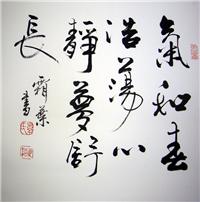 氣和春
浩蕩心
靜夢舒
長
霜葉書